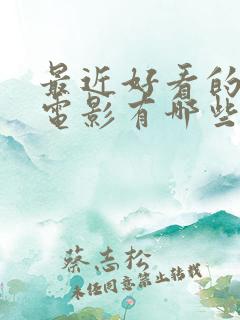 最近好看的
電影有哪些
蔡志松
未经同意禁止转载